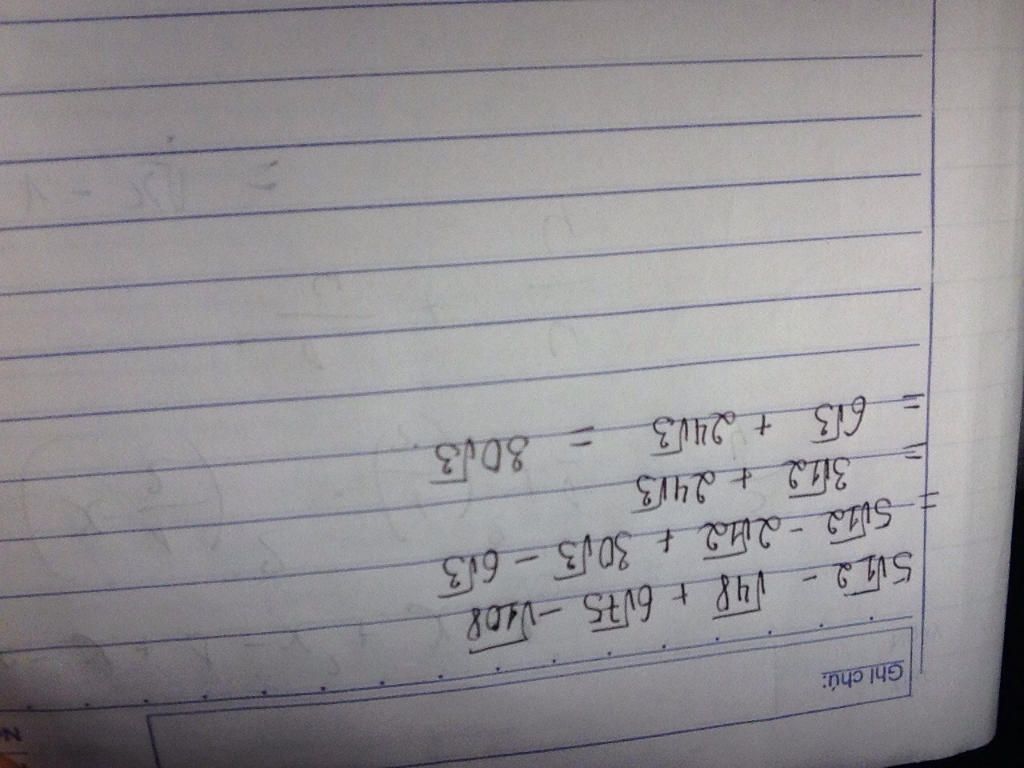 Ghi chú:
5√12 - √48 + 6√75 - √108
= 5√12 - 2√12 + 30√3 - 6√3
= 3√12 + 24√3
= 6√3 + 24√3 = 30√3.